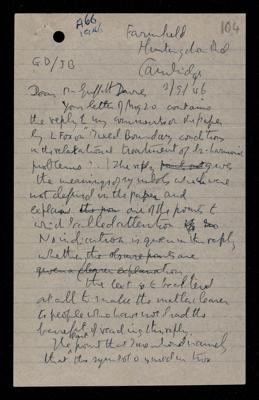 A66
1946
104
Farmfield
Huntingdon Rd
Cambridge
GD/JB
3/9/46
Dear Mr Griffith Davies
Your letter of Aug 20 contains
the reply to my comments on the paper
by L Fox on "Mixed Boundary conditions
in the relaxational treatment of bi-harmonic
problems". The reply gives
the meanings of symbols which were
not defined in the paper and
explains one of the points to
which I called attention
No indication is given in the reply
whether the obscure points are
given a clearer explanation
the text is to be altered
at all to make the matter clearer
to people who have not had the
benefit of reading the reply.
The point that I mentioned namely
that the symbol is used in two